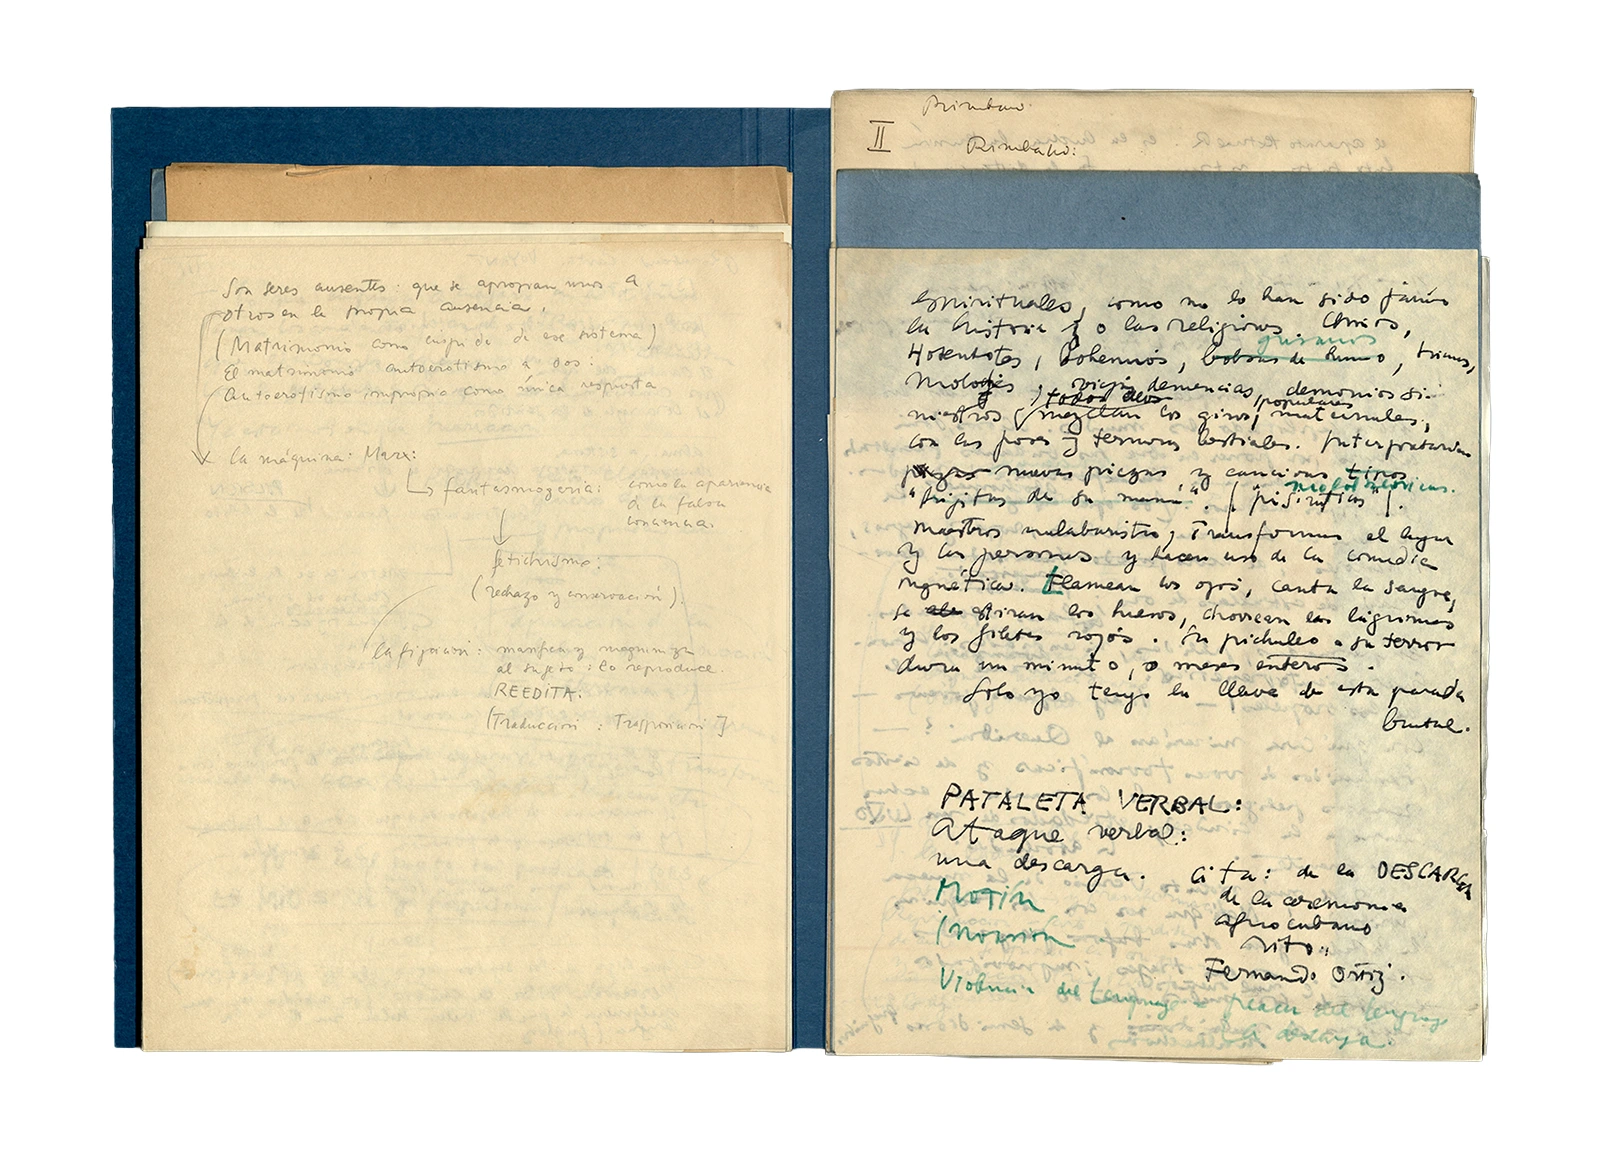 Son seres ausentes: que se apropian unos a
otros en la propia ausencia.
(Matrimonio como cuspide de ese sistema)
El matrimonio autoerotismo a dos:
Autoerotismo impropio como única respuesta
la máquina: Marx:
fantasmogeria: como la apariencia
de la falsa
conciencia.
fetichismo:
(rechazo y conservación).
la fijación: manifica y magnimiza
al sujeto: lo reproduce.
REEDITA:
(Traducción: Trasposición]
Rimbaud
II Rimbaud:
espirituales, como no lo han sido jamás
la historia y o las religiones. Chinos,
gusanos
Hotentotes, bohemios, bobos de humo, hienas,
Molochs, viejas demencias, demonios si-
todos ellos populares
niestros mezclan los giros, maternales,
con las poses y ternuras bestiales. Interpretarían
piezas nuevas piezas y canciones tipos
melodramáticas.
Maestros malabaristas, Transforman el lugar
y las personas y hacen uso de la comedia
magnética. Flamean los ojos, canta la sangre,
se estiran los huesos, chorrean las lágrimas
y los filetes rojos. Su pichuleo o su terror
dura un minuto, o meses enteros.
Solo yo tengo la llave de esta parada
brutal.
PATALETA VERBAL:
Ataque verbal:
una descarga.
cita: de la DESCARGA
de la ceremonia
afrocubano
rito:
Fernando Ortiz.
Motín
Invasión
Violencia del Lenguaje = del lenguaje
La descarga.